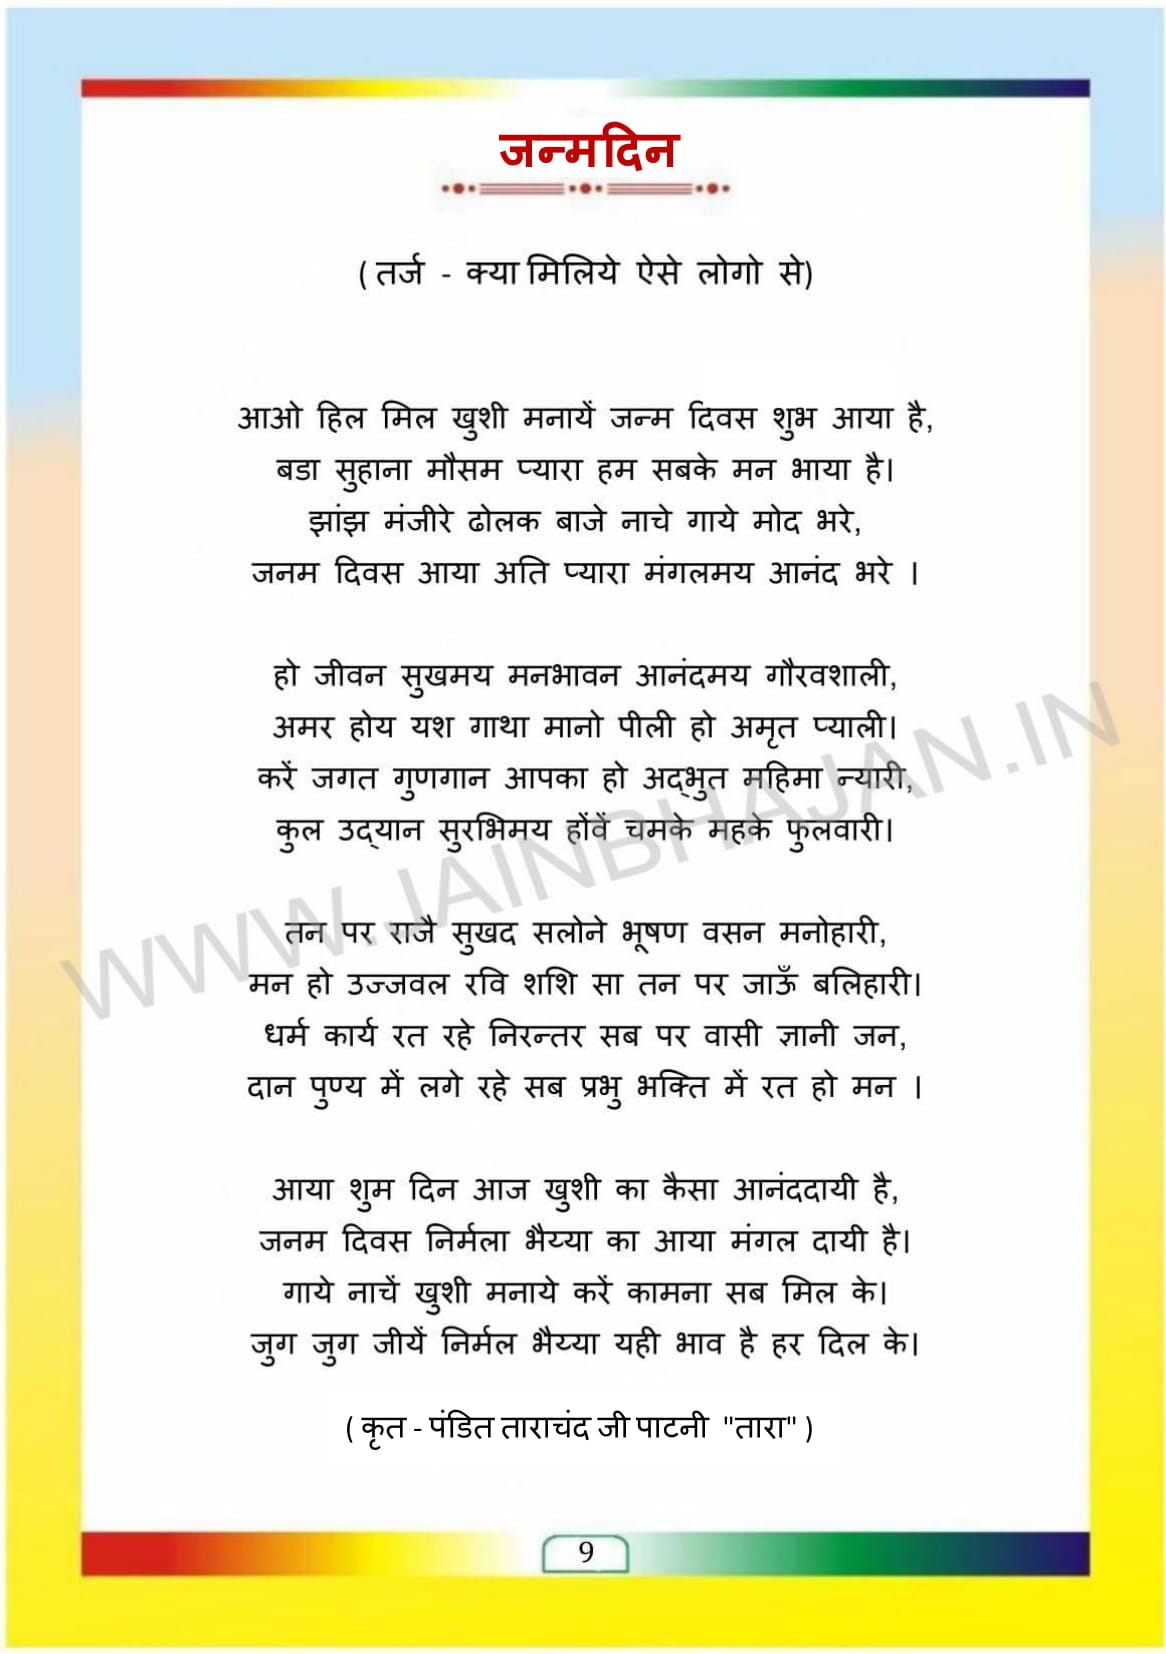 जन्मदिन
( तर्ज - क्या मिलिये ऐसे लोगो से)
आओ हिल मिल खुशी मनायें जन्म दिवस शुभ आया है,
बडा सुहाना मौसम प्यारा हम सबके मन भाया है।
झांझ मंजीरे ढोलक बाजे नाचे गाये मोद भरे,
जनम दिवस आया अति प्यारा मंगलमय आनंद भरे ।
हो जीवन सुखमय मनभावन आनंदमय गौरवशाली,
अमर होय यश गाथा मानो पीली हो अमृत प्याली।
करें जगत गुणगान आपका हो अद्भुत महिमा न्यारी,
कुल उद्यान सुरभिमय होंवें चमके महके फुलवारी।
WWW.JAINBHAJAN.IN
तन पर राजै सुखद सलोने भूषण वसन मनोहारी,
मन हो उज्जवल रवि शशि सा तन पर जाऊँ बलिहारी।
धर्म कार्य रत रहे निरन्तर सब पर वासी ज्ञानी जन,
दान पुण्य में लगे रहे सब प्रभु भक्ति में रत हो मन ।
आया शुम दिन आज खुशी का कैसा आनंददायी है,
जनम दिवस निर्मला भैय्या का आया मंगल दायी है।
गाये नाचें खुशी मनाये करें कामना सब मिल के।
जुग जुग जीयें निर्मल भैय्या यही भाव है हर दिल के।
( कृत - पंडित ताराचंद जी पाटनी "तारा" )
9